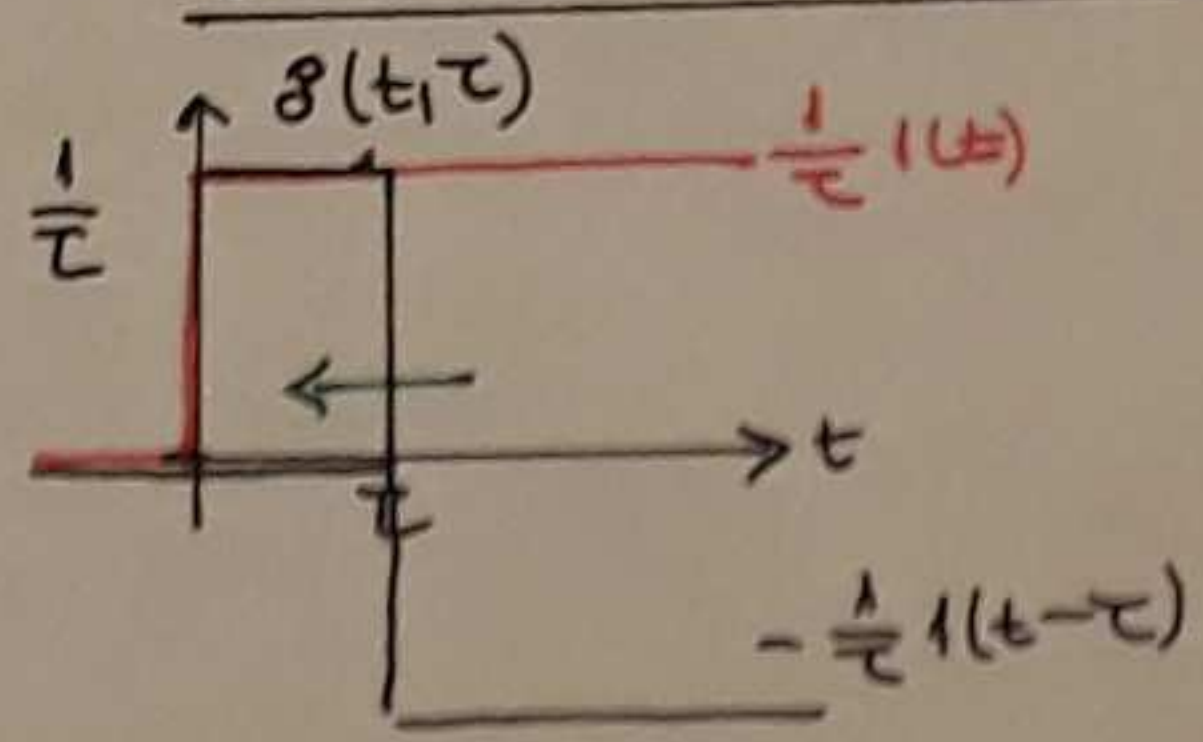 δ(t,τ)
1/τ
1/τ 1(t)
t
τ
- 1/τ 1(t-τ)